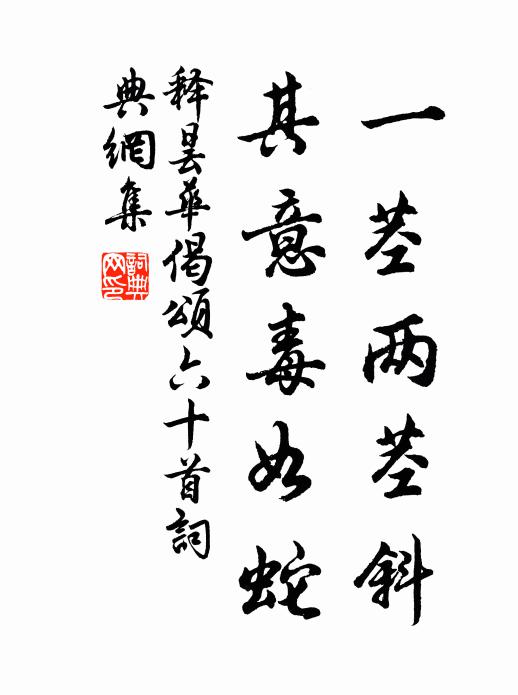 一茎两茎斜
其意毒如蛇
释昙華偈頌六十首詞
典網集
詞典网印